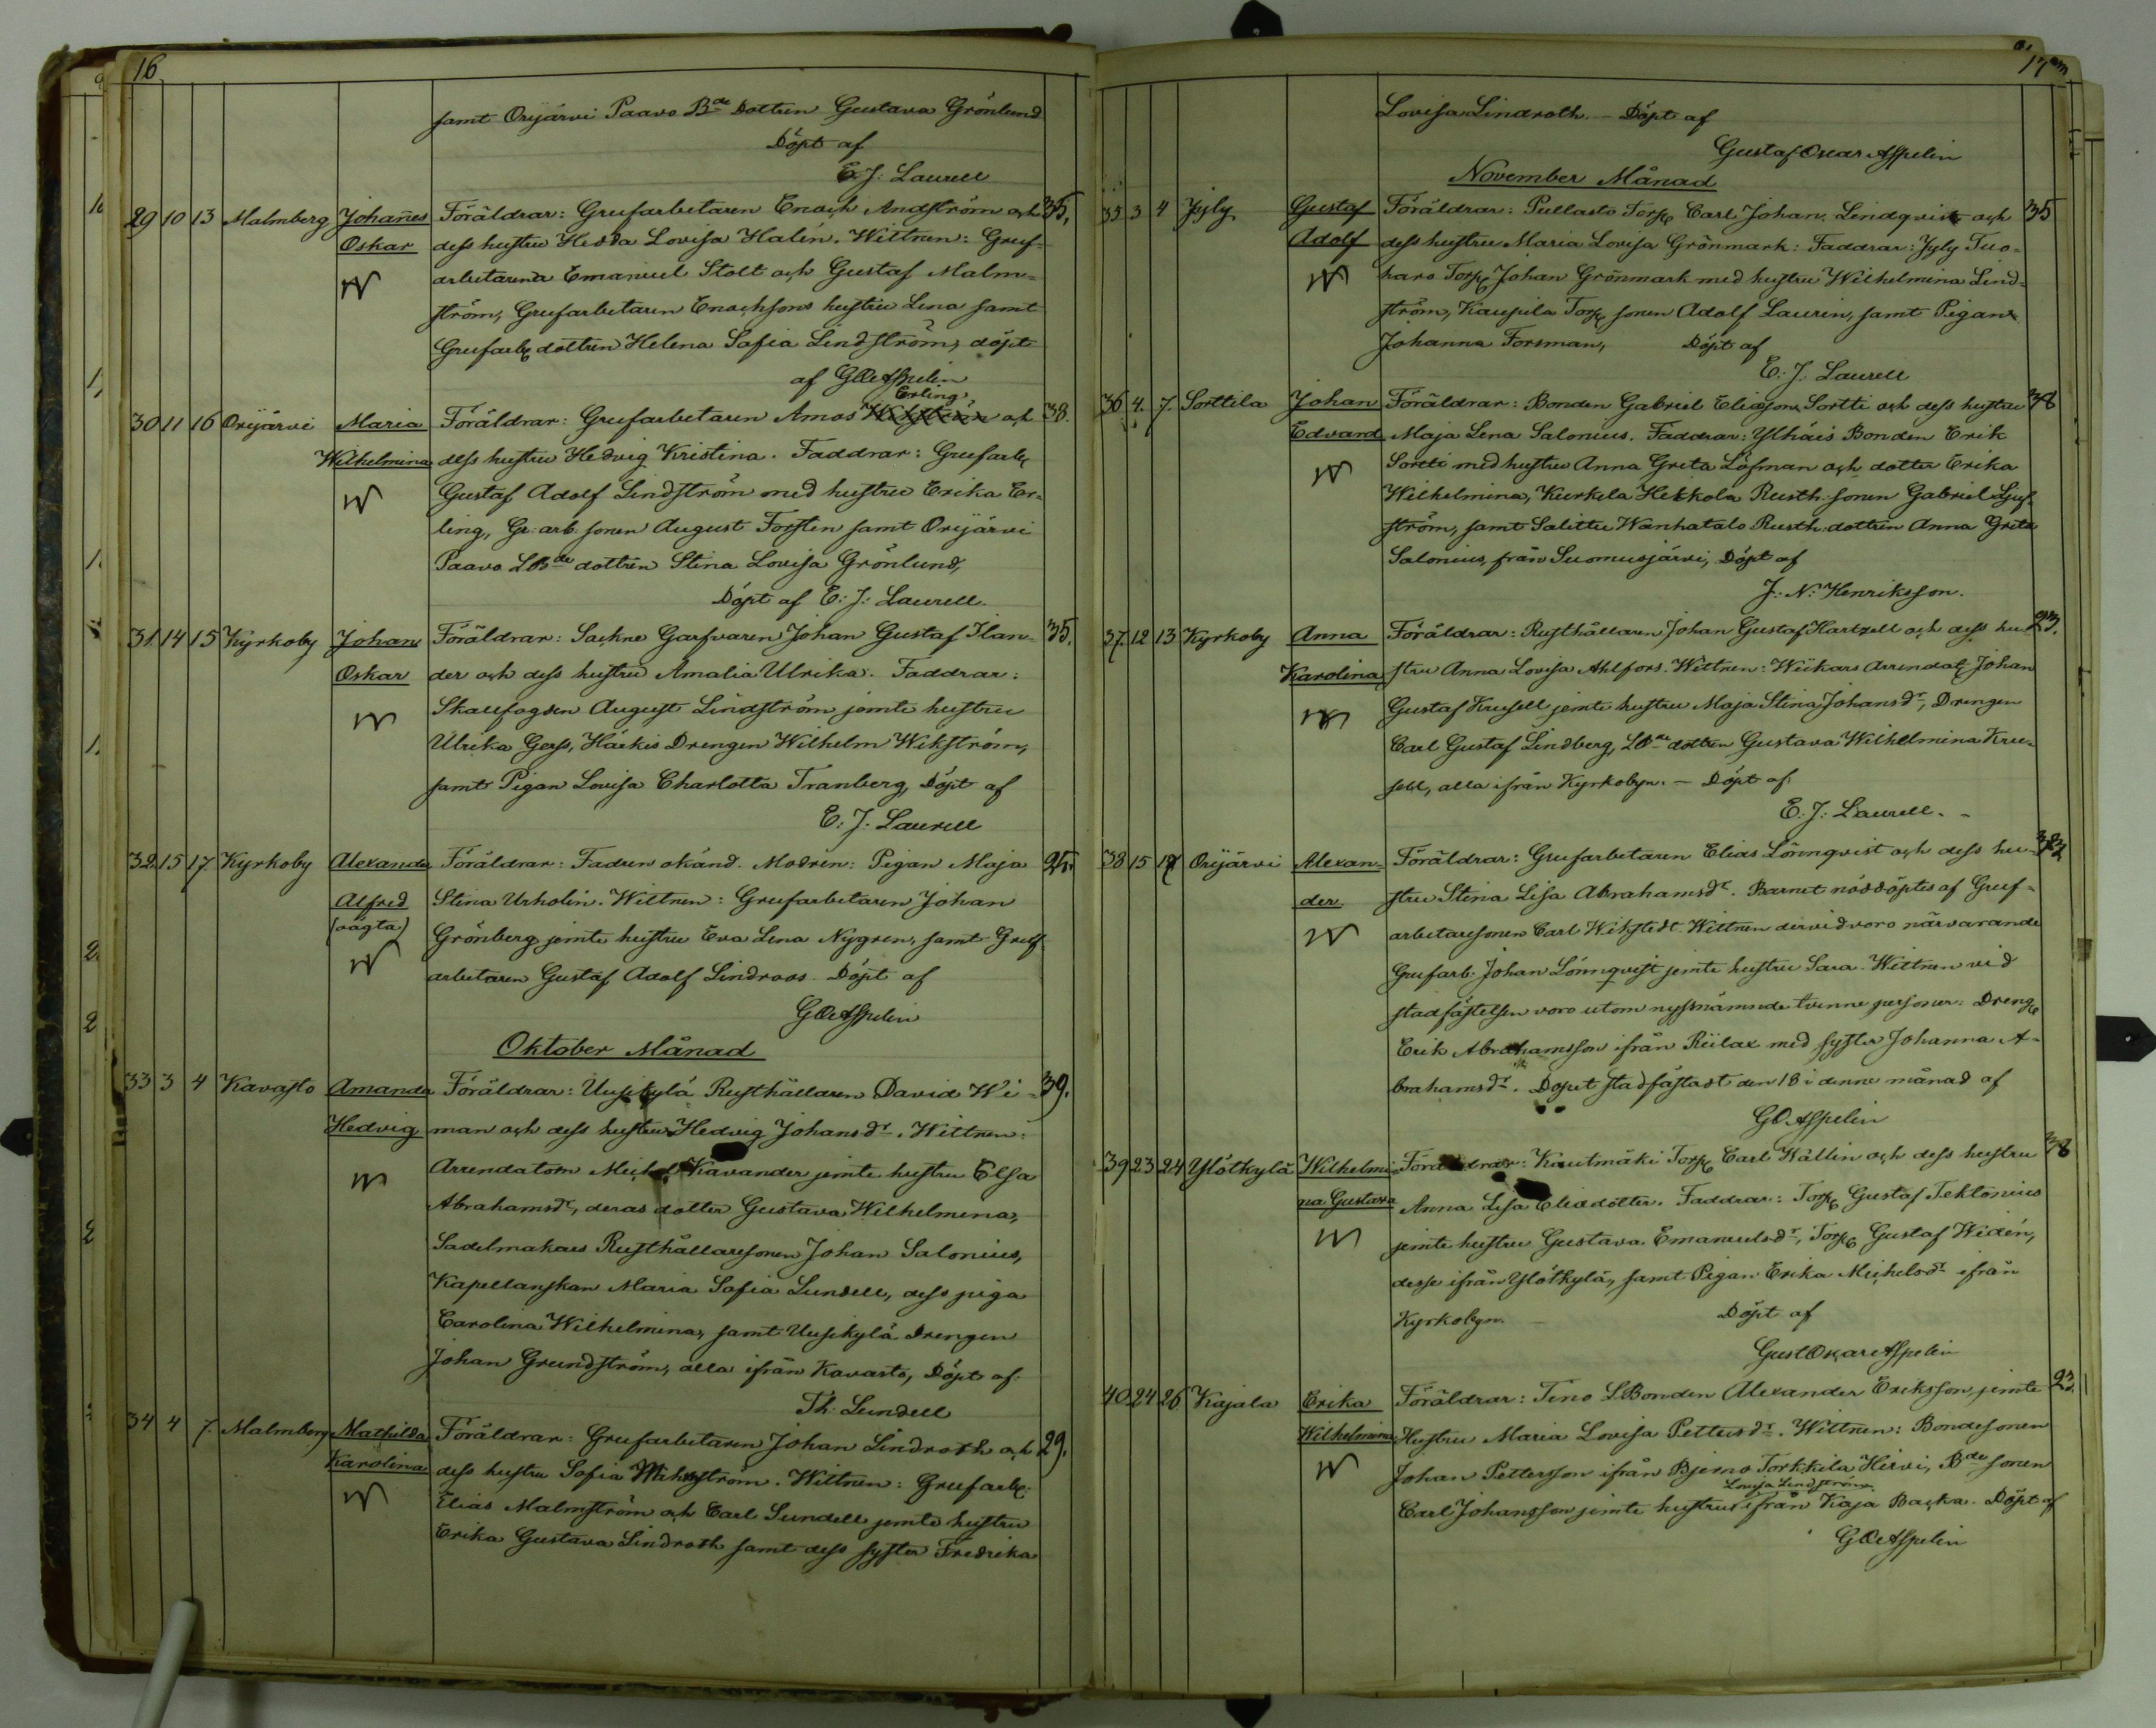 16
samt Orijärvi Paavo Bde Dottren Gustava Grönlund
Döpt af
E. J. Laurell
29 10 13 Malmberg Johañes Föräldrar: Grufarbetaren Enoch Andström och 35.
Oskar dess hustru Hedda Lovisa Halén. Wittnen: Gruf-
arbetarena Emanuel Stolt och Gustaf Malm-
ström, Grufarbetaren Enochsons hustru Lena samt
Grufarb. dottren Helena Sofia Lindström, döpt
af GOAspelin
Erling
30 11 16 Orijärvi Maria Föräldrar: Grufarbetaren Amos och 38.
Wilhelmina dess hustru Hedvig Kristina. Faddrar: Grufarb.
Gustaf Adolf Lindström med hustru Erika Er-
ling, Gr. arb. sonen August Forsten samt Orijärvi
Paavo LBde dottren Stina Lovisa Grönlund,
Döpt af E. J. Laurell.
31. 14 15 Kyrkoby Johan Föräldrar: Sockne Garfvaren Johan Gustaf Ilan- 35.
Oskar der och dess hustru Amalia Ulrika. Faddrar:
Skaufogden August Lindström jemte hustru
Ulrika Gerss, Härkis Drengen Wilhelm Wikström,
samt Pigan Lovisa Charlotta Tranberg, Döpt af
E. J. Laurell
32. 15 17. Kyrkoby Alexander Föräldrar: Fadren okänd. Modren: Pigan Maja 25.
Alfred Stina Urholin. Wittnen: Grufarbetaren Johan
(oägta) Grönberg jemte hustru Eva Lena Nygren, samt Gruf
arbetaren Gustaf Adolf Lindroos Döpt af
GOAspelin
Oktober Månad
33 3 4 Kavasto Amanda Föräldrar: Uusikylä Rusthållaren David Wi- 39.
Hedvig man och dess hustru Hedvig Johansdr. Wittnen:
Arrendatorn Michel Kavander jemte hustru Elsa
Abrahamsdr, deras dotter Gustava Wilhelmina,
Sadelmakars Rusthållaresonen Johan Salonius,
Kapellanskan Maria Sofia Lundell, dess piga
Carolina Wilhelmina, samt Uusikylä Drengen
Johan Grundström, alla ifrån Kavasto, Döpt af
Th. Lundell
34 4 7. Malmberg Mathilda Föräldrar: Grufarbetaren Johan Lindroth och 29.
Karolina dess hustru Sofia Wikström. Wittnen: Grufarb.
Elias Malmström och Carl Sundell jemte hustru
Erika Gustava Lindroth samt dess syster Fredrika
17
Lovisa Lindroth. - Döpt af
Gustaf Oscar Aspelin
November Månad
35 3 4 Jyly Gustaf Föräldrar: Pullasto Torp. Carl Johan Lindqvist och 35
Adolf dess hustru Maria Lovisa Grönmark: Faddrar: Jyly Tuo-
haro Torp. Johan Grönmark med hustru Wilhelmina Lind-
ström, Kaupila Torp. sonen Adolf Laurin, samt Pigan
Johanna Forsman, Döpt af
E. J. Laurell
36 4. 7. Sorttila Johan Föräldrar: Bonden Gabriel Eliasson Sortti och dess hustru 38
Edvard Maja Lena Salonius. Faddrar: Ylhäis Bonden Erik
Soretti med hustru Anna Greta Löfman och dotter Erika
Wilhelmina, Kurkela Heikkola Rusth. sonen Gabriel Ljuf-
ström, samt Salittu Wanhatalo Rusth. dottren Anna Greta
Salonius, från Suomusjärvi, Döpt af
J. N. Henriksson.
37. 12 13 Kyrkoby Anna Föräldrar: Rusthållaren Johan Gustaf Hartzell och dess hu- 23.
Karolina stru Anna Lovisa Ahlfors. Wittnen: Wiikars Arrendat. Johan
Gustaf Krusell jemte hustru Maja Stina Johansdr, Drengen
Carl Gustaf Lindberg, LBde dottren Gustava Wilhelmina Kru-
sell, alla ifrån Kyrkobyn. - Döpt af
E. J. Laurell. -
38 15 17 Orijärvi Alexan- Föräldrar: Grufarbetaren Elias Lönnqvist och dess hu-
der. stru Stina Lisa Abrahamsdr. Barnet nöddöptes af Gruf-
arbetaresonen Carl Wikstedt. Wittnen dervid voro närvarande
Grufarb. Johan Lönnqvist jemte hustru Sara. Wittnen vid
stadfästelsen voro utom nyssnämnde tvenne personer: Dreng.
Erik Abrahamsson ifrån Riilax med syster Johanna A-
brahamsdr. Dopet stadfästadt den 18 i denne månad af
GOAspelin
39 23 24 Ylötkylä Wilhelmi- Föräldrar: Kautmäki Torp. Carl Wallin och dess hustru 38
na Gustava Anna Lisa Eliædotter. Faddrar: Torp. Gustaf Tektonius
jemte hustru Gustava Emanuelsdr, Torp. Gustaf Widén,
desse ifrån Ylötkylä, samt Pigan Erika Michelsdr ifrån
Kyrkobyn. - Döpt af
Gust Oscar Aspelin
40. 24 26 Kajala Erika Föräldrar: Tino S. Bonden Alexander Eriksson jemte 23.
Wilhelmina Hustru Maria Lovisa Pettersdr. Wittnen: Bondesonen
Johan Pettersson ifrån Bjerno Torkkila Hirvi, Bde sonen
Lovisa Lindström
Carl Johansson jemte hustru ifrån Kaja Backa. Döpt af
GOAspelin